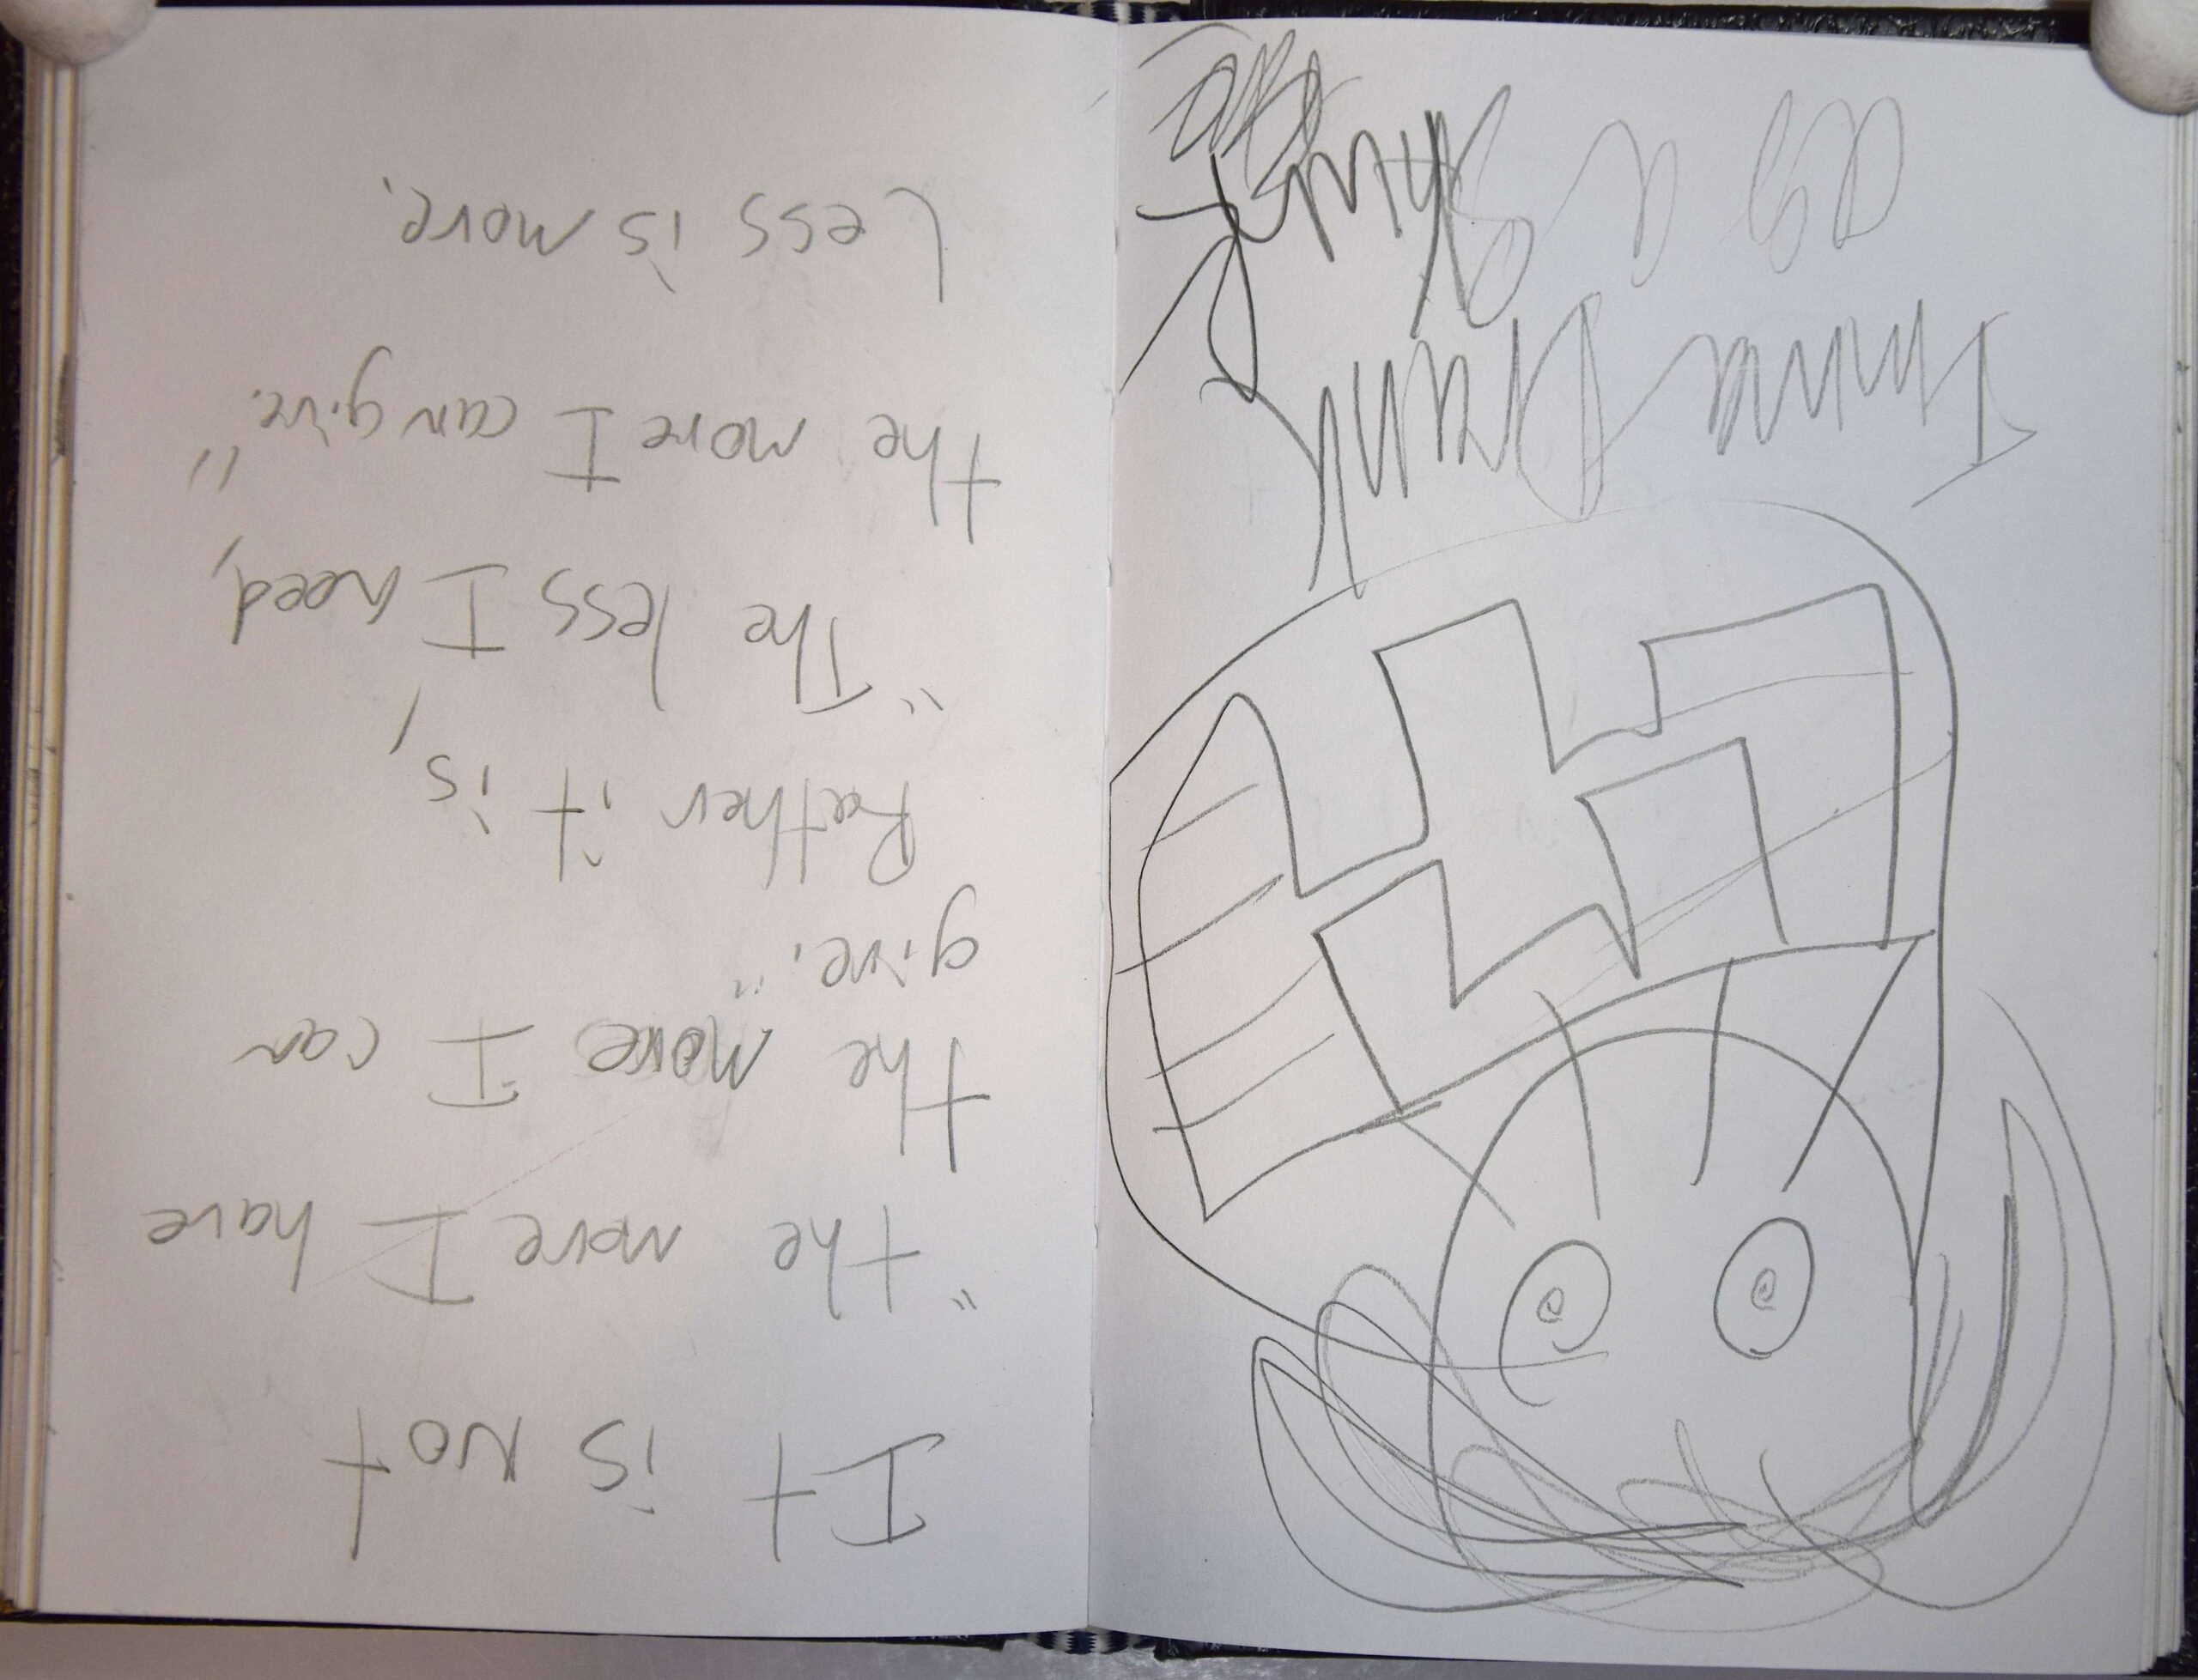 It is Not
"the more I have
the more I can
give."
Rather it is,
"The less I need,
the more I can give."
Less is more.
as a